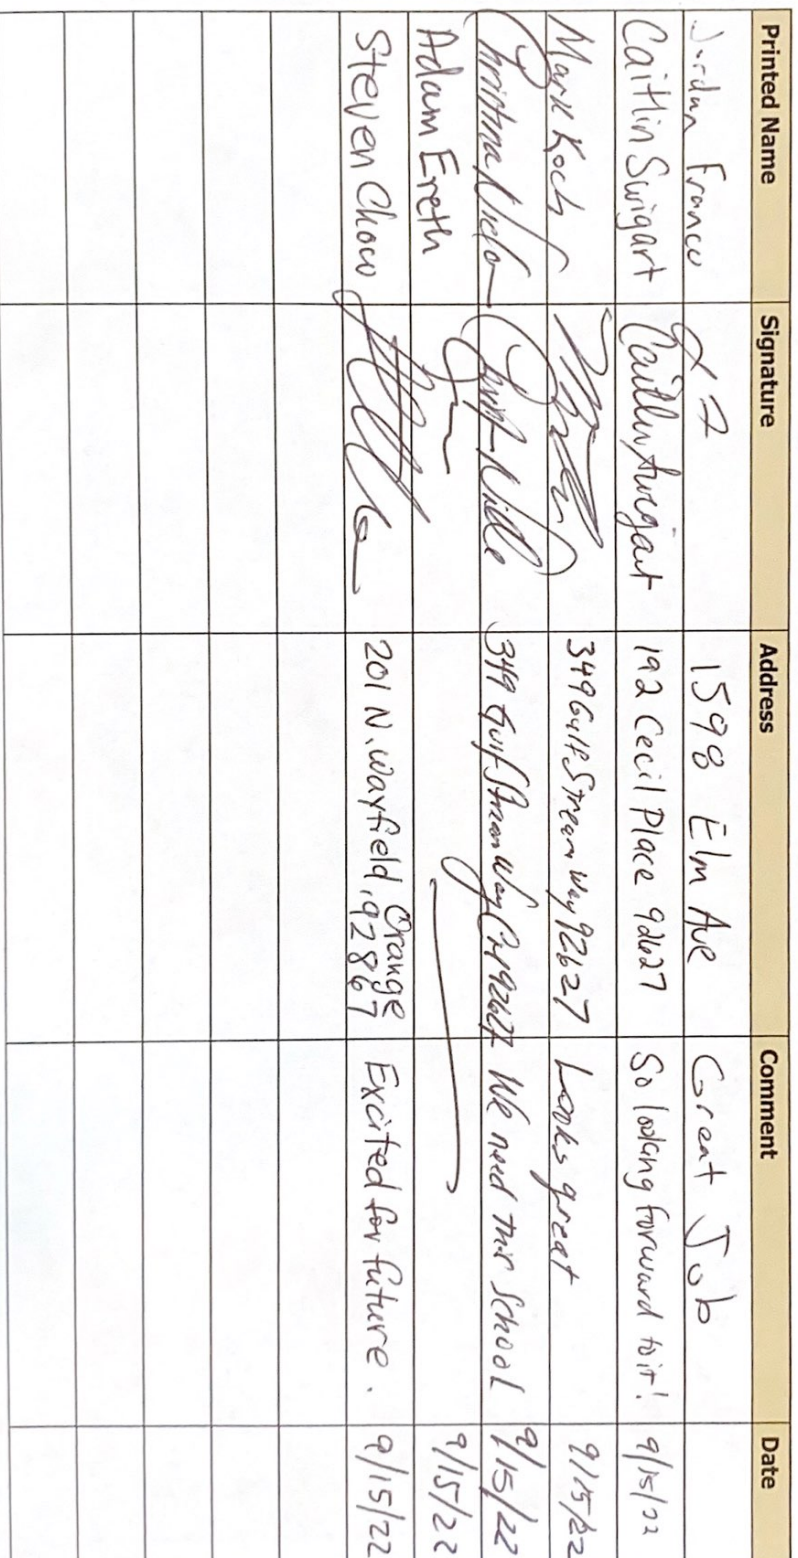 Printed Name Signature Address Comment Date
Jordan Franco 1598 Elm Ave Great Job
Caitlin Swigart Caitlin Swigart 192 Cecil Place 92627 So looking forward to it! 9/15/22
Mark Koch 349 Gulf Stream Way 92627 Looks great 9/15/22
Christina 349 Gulf Stream Way CM 92627 We need this school 9/15/22
Adam Ereth 9/15/22
Steven Chow 201 N. Wayfield, Orange 92867 Excited for future. 9/15/22